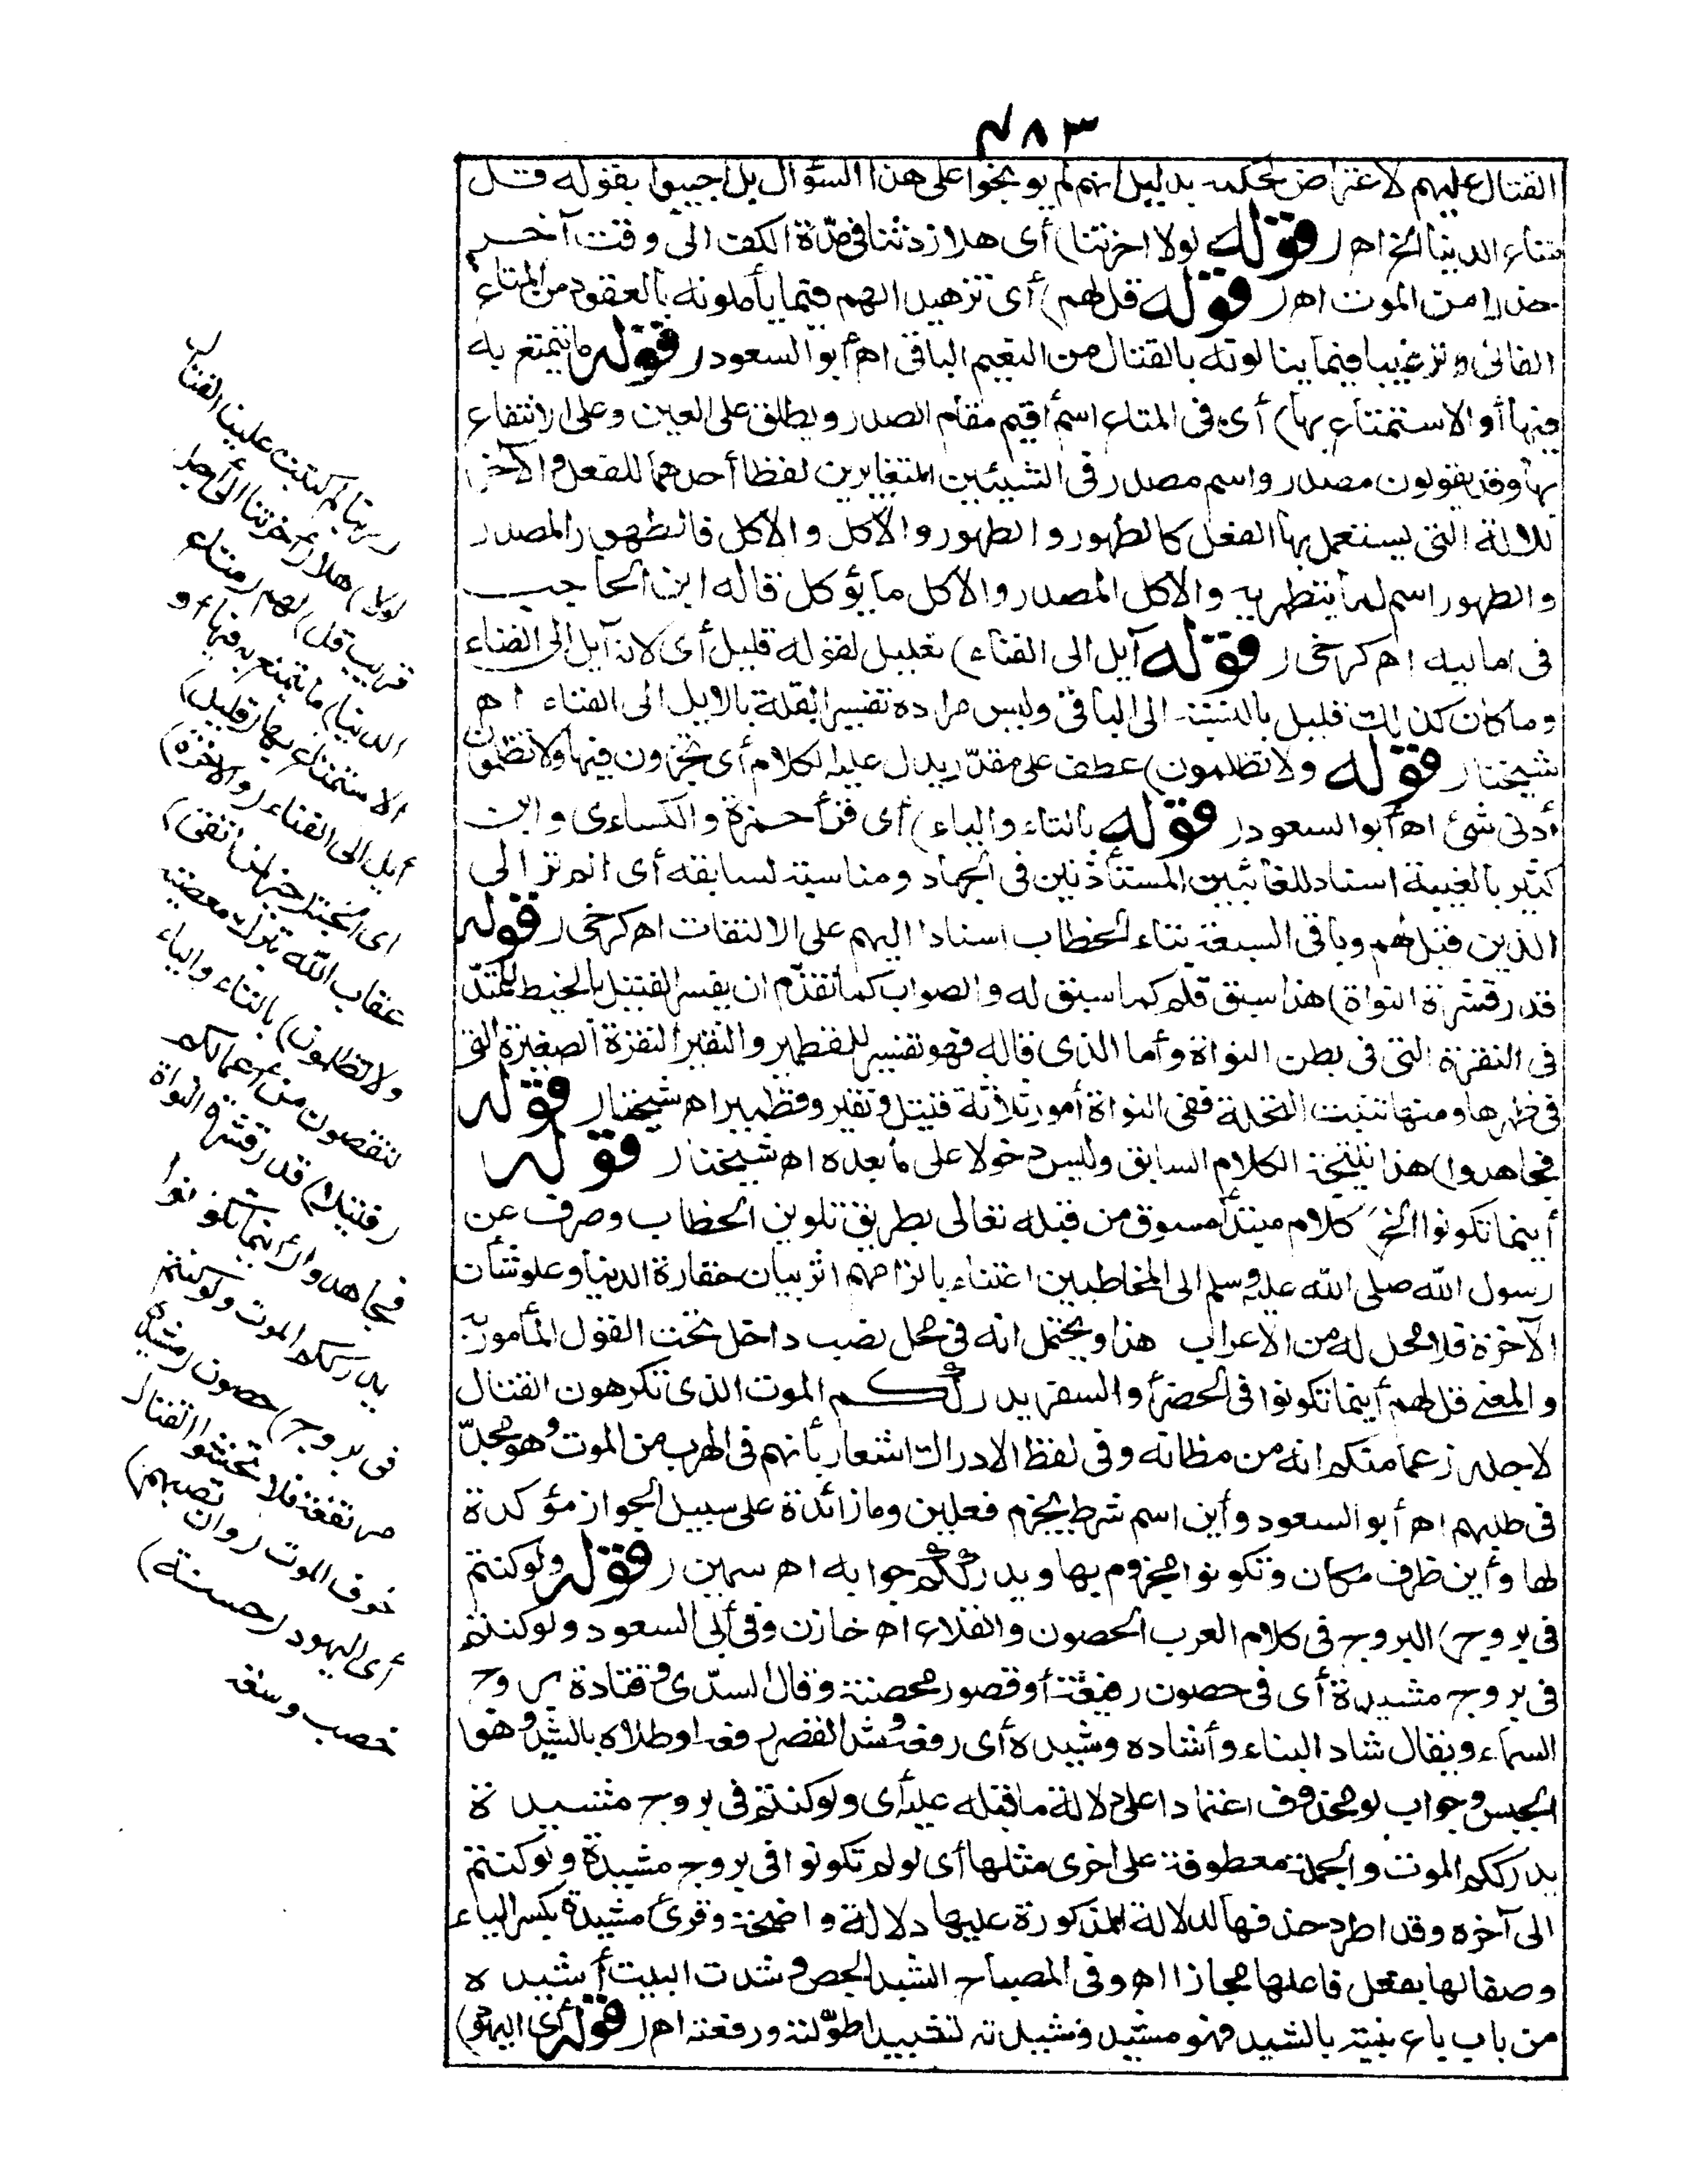 ٤٨٣
القتال عليهم لا اعتراض لحكمه بدليل انهم لم يوبخوا على هذا السؤال بل اجيبوا بقوله قل
متاع الدنيا الخ اهـ (قوله لولا اخرتنا) أى هلا زدتنا فى مدّة الكف الى وقت آخر
حذرا من الموت اهـ (قوله قل لهم) أى تزهيدا لهم فيما يأملونه بالعقود من المتاع
الفانى وترغيبا فيما ينالونه بالقتال من النعيم الباقى اهـ أبو السعود (قوله ما يتمتع به
فيها أو الاستمتاع بها) أى فى المتاع اسم أقيم مقام المصدر ويطلق على العين وعلى الانتفاع
بها وقد يقولون مصدر واسم مصدر فى الشيئين المتغايرين لفظا أحدهما للفعل والآخر
للآلة التى يستعمل بها الفعل كالطهور والطهور والأكل والأكل فالطهور المصدر
والطهور اسم لما يتطهر به والاكل المصدر والاكل ما يؤكل قاله ابن الحاجب
فى اماليه اهـ كرخى (قوله آيل الى الفناء) تعليل لقوله قليل أى لانه آيل الى الفناء
وما كان كذلك قليل بالنسبة الى الباقى وليس مراده تفسير القلة بالايل الى الفناء اهـ
شيخنا (قوله ولا تظلمون) عطف على مقدّر يدل عليه الكلام أى تجزون فيها ولا تظلمون
أدنى شئ اهـ أبو السعود (قوله بالتاء والياء) أى قرأ حمزة والكساءى وابن
كثير بالغيبة اسناد للغائبين المستأذنين فى الجهاد ومناسبة لسابقه أى الم تر الى
الذين قيل لهم وباقى السبعة بتاء الخطاب اسنادا اليهم على الالتفات اهـ كرخى (قوله
قدر قشرة النواة) هذا سبق قلم كما سبق له والصواب كما تقدّم ان يفسر الفتيل بالخيط الممتدّ
فى النقرة التى فى بطن النواة وأما الذى قاله فهو تفسير للقطمير والنقير النقرة الصغيرة التى
فى ظهرها ومنها تنبت النخلة ففى النواة أمور ثلاثة فتيل ونقير وقطمير اهـ شيخنا (قوله
فجاهدوا) هذا نتيجة الكلام السابق وليس دخولا على ما بعده اهـ شيخنا (قوله
أينما تكونوا الخ) كلام مبتدأ مسوق من قبله تعالى بطريق تلوين الخطاب وصرف عن
رسول الله صلى الله عليه وسلم الى المخاطبين اعتناء بالزامهم اثر بيان حقارة الدنيا وعلو شأن
الآخرة فلا محل له من الاعراب هذا ويحتمل انه فى محل نصب داخل تحت القول المأمور به
والمعنى قل لهم أينما تكونوا فى الحضر أو السفر يدرككم الموت الذى تكرهون القتال
لاجله زعما منكم انه من مظانه وفى لفظ الادراك اشعار بأنهم فى الهرب من الموت وهو مجدّ
فى طلبهم اهـ أبو السعود وأين اسم شرط يجزم فعلين وما زائدة على سبيل الجواز مؤكدة
لها وأين ظرف مكان وتكونوا مجزوم بها ويدرككم جوابه اهـ سمين (قوله ولو كنتم
فى بروج) البروج فى كلام العرب الحصون والقلاع اهـ خازن وفى أبى السعود ولو كنتم
فى بروج مشيدة أى فى حصون رفيعة أو قصور محصنة وقال السدّى وقتادة بروج
السماء ويقال شاد البناء وأشاده وشيده أى رفعه وشيد القصر رفعه او طلاه بالشيد وهو
الجبس وجواب لو محذوف اعتمادا على دلالة ما قبله عليه أى ولو كنتم فى بروج مشيدة
يدرككم الموت والجملة معطوفة على اخرى مثلها أى لو لم تكونوا فى بروج مشيدة ولو كنتم
الى آخره وقد اطرد حذفها لدلالة المذكورة عليها دلالة واضحة وقرئ مشيدة بكسر الياء
وصفا لها بفعل فاعلها مجازا اهـ وفى المصباح الشيد الجص وشدت البيت أشيده
من باب باع بنيته بالشيد فهو مشيد وشيدته تشييدا طوّلته ورفعته اهـ (قوله أى اليهود)
(ربنا لم كتبت علينا القتال
لولا) هلا (أخرتنا الى أجل
قريب قل) لهم (متاع
الدنيا) ما يتمتع به فيها أو
الاستمتاع بها (قليل)
آيل الى الفناء (والآخرة)
اى الجنة (خير لمن اتقى)
عقاب الله بترك معصيته
(ولا تظلمون) بالتاء والياء
تنقصون من أعمالكم
(فتيلا) قدر قشرة النواة
فجاهدوا (أينما تكونوا
يدرككم الموت ولو كنتم
فى بروج) حصون (مشيدة)
مرتفعة فلا تخشوا القتال
خوف الموت (وان تصبهم)
أى اليهود (حسنة)
خصب وسعة